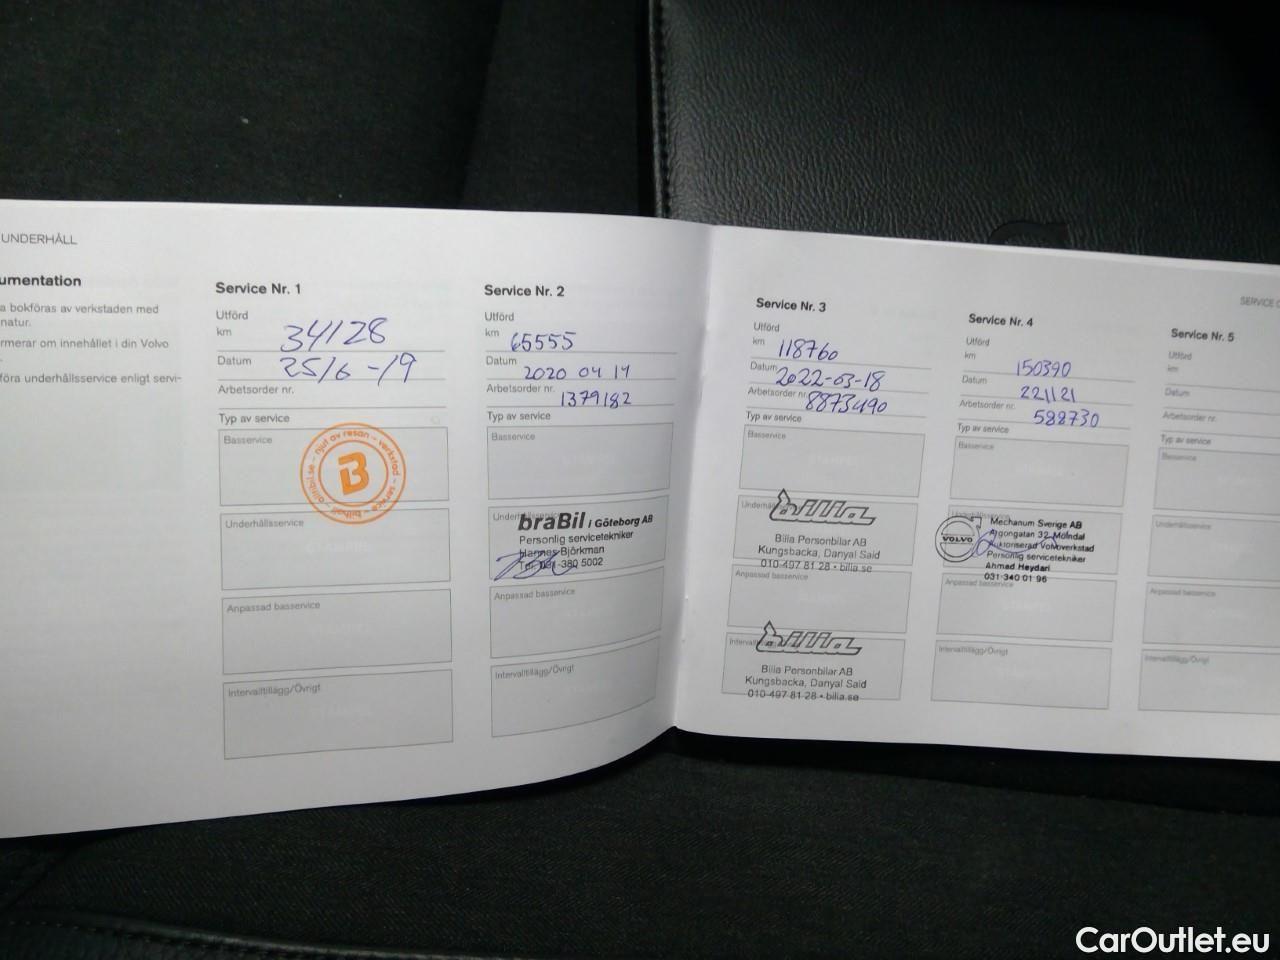 UNDERHÅLL
umentation
a bokföras av verkstaden med
natur.
ormerar om innehållet i din Volvo
föra underhållsservice enligt servi-
Service Nr. 1
Utförd
km 34128
Datum 25/6 -19
Arbetsorder nr.
Typ av service
Basservice
B
bilhall - allribil.se - njut av resan - verkstad - service -
Underhållsservice
Anpassad basservice
Intervalltillägg/Övrigt
Service Nr. 2
Utförd
km 65555
Datum 2020 04 14
Arbetsorder nr. 1379182
Typ av service
Basservice
braBil i Göteborg AB
Personlig servicetekniker
Hannes Björkman
Tel. 031-380 5002
Anpassad basservice
Intervalltillägg/Övrigt
SERVICE
Service Nr. 3
Utförd
km 118760
Datum 2022-03-18
Arbetsorder nr. 8873490
Typ av service
Basservice
Underhåll
bilia
Bilia Personbilar AB
Kungsbacka, Danyal Said
010-497 81 28 • bilia.se
Anpassad basservice
bilia
Bilia Personbilar AB
Kungsbacka, Danyal Said
010-497 81 28 • bilia.se
Service Nr. 4
Utförd
km 150390
Datum 221121
Arbetsorder nr. 588730
Typ av service
Basservice
VOLVO
Mechanum Sverige AB
Argongatan 32 Mölndal
Auktoriserad Volvoverkstad
Personlig servicetekniker
Ahmad Heydari
031-340 01 96
Anpassad basservice
Intervalltillägg/Övrigt
Service Nr. 5
Utförd
km
Datum
Arbetsorder nr.
Typ av service
Basservice
Underhållsservice
Anpassad basservice
Intervalltillägg/Övrigt
CarOutlet.eu